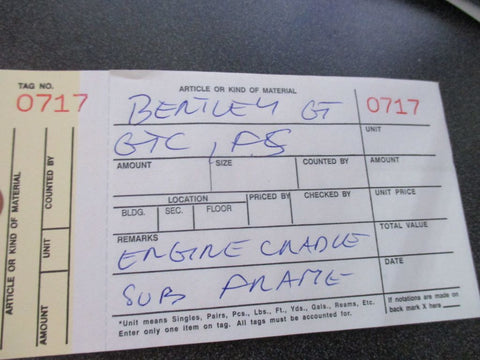 TAG NO.
0717
ARTICLE OR KIND OF MATERIAL
COUNTED BY
UNIT
AMOUNT
ARTICLE OR KIND OF MATERIAL
BENTLEY GT
0717
GTC, FS
UNIT
AMOUNT SIZE COUNTED BY AMOUNT
LOCATION PRICED BY CHECKED BY UNIT PRICE
BLDG. SEC. FLOOR
TOTAL VALUE
REMARKS
ENGINE CRADLE
DATE
SUB FRAME
*Unit means Singles, Pairs, Pcs., Lbs., Ft., Yds., Gals., Reams, Etc.
Enter only one item on tag. All tags must be accounted for.
If notations are made on
back mark X here.